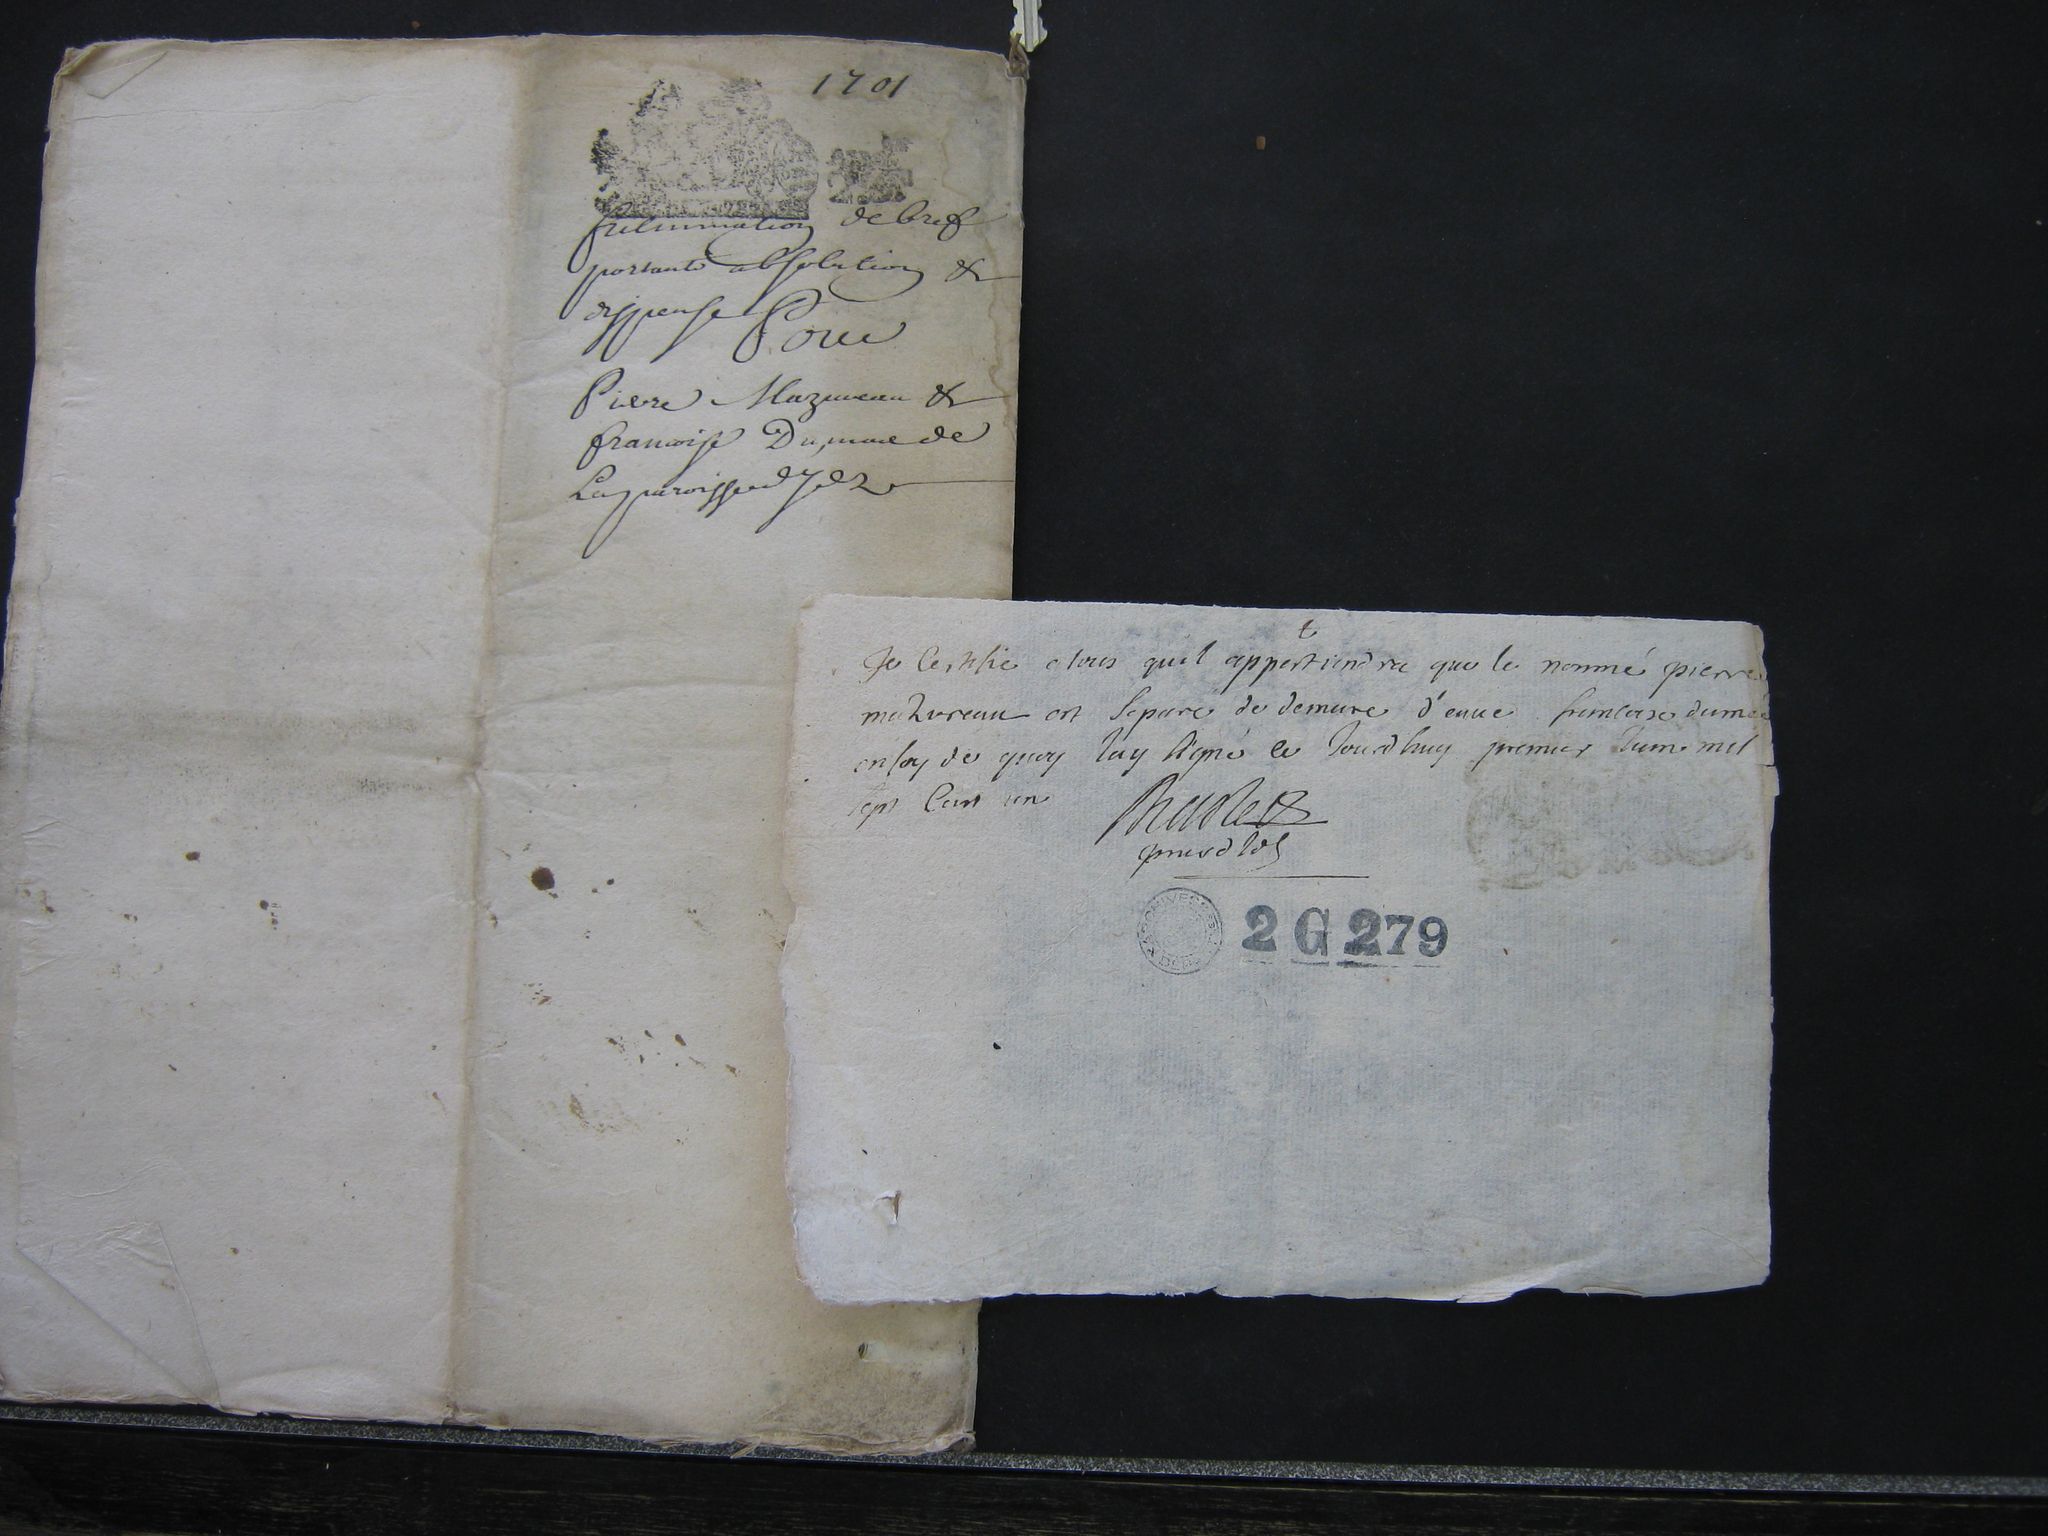 1701
fulmination de bref
portant absolution &
dispense Pour
Pierre Mazureau &
francoise Dumae de
La paroisse d
Je Certifie a tous quil appartiendra que le nommé pierre
mazureau est Separé de demure d'avec francoise dumée
en foy de quoy Jay signé ce Jourdhuy premier Jume mil
sept Cent un
2 G 279